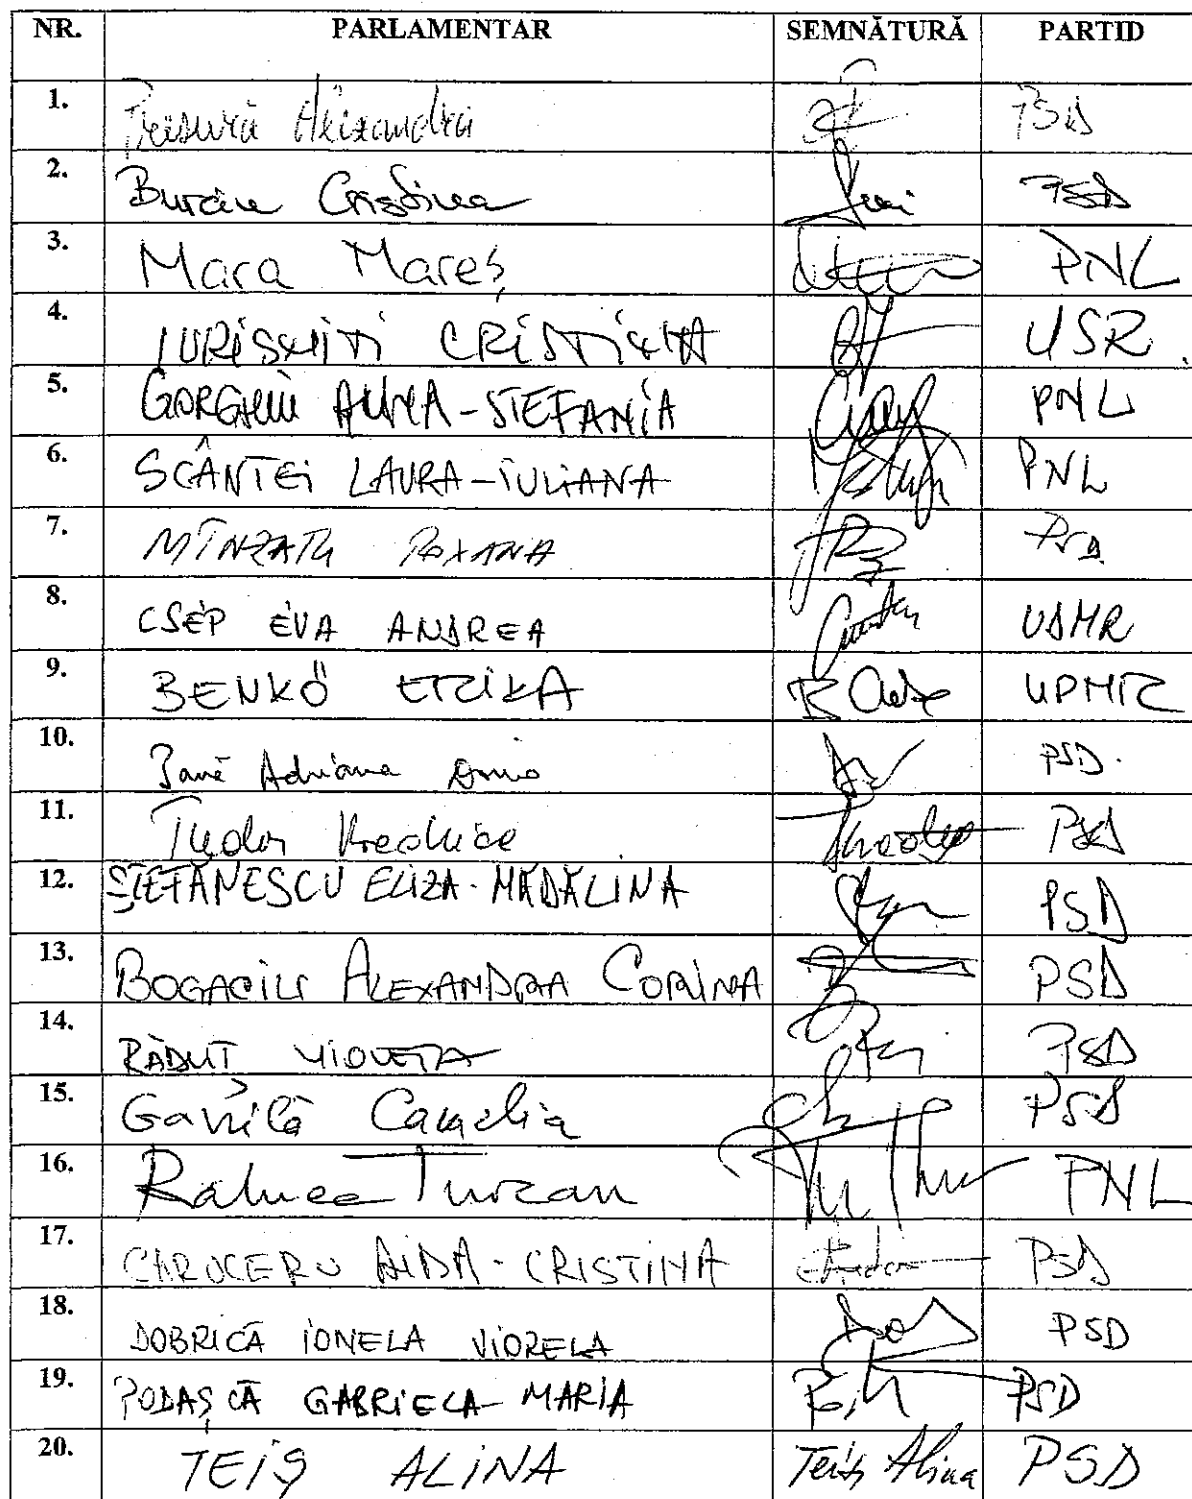 NR. PARLAMENTAR SEMNĂTURĂ PARTID
1. Presură Alexandra PSD
2. Burciu Cristina PSD
3. Mara Mareș PNL
4. IURISNITI CRISTINA USR
5. GORGHIU ALINA-STEFANIA PNL
6. SCÂNTEI LAURA-IULIANA PNL
7. MÎNZATU ROXANA PSD
8. CSÉP ÉVA ANDREA UDMR
9. BENKŐ ERIKA UDMR
10. Adriana PSD.
11. Tudor PSD
12. ȘTEFĂNESCU ELIZA-MĂDĂLINA PSD
13. BOGACIU ALEXANDRA CORINA PSD
14. RĂDUT VIOLETA PSD
15. Gavrilă Camelia PSD
16. Raluca Turcan PNL
17. CĂRUCERU AIDA-CRISTINA PSD
18. DOBRICĂ IONELA VIORELA PSD
19. PODAȘCĂ GABRIELA-MARIA PSD
20. TEIȘ ALINA Teiș Alina PSD